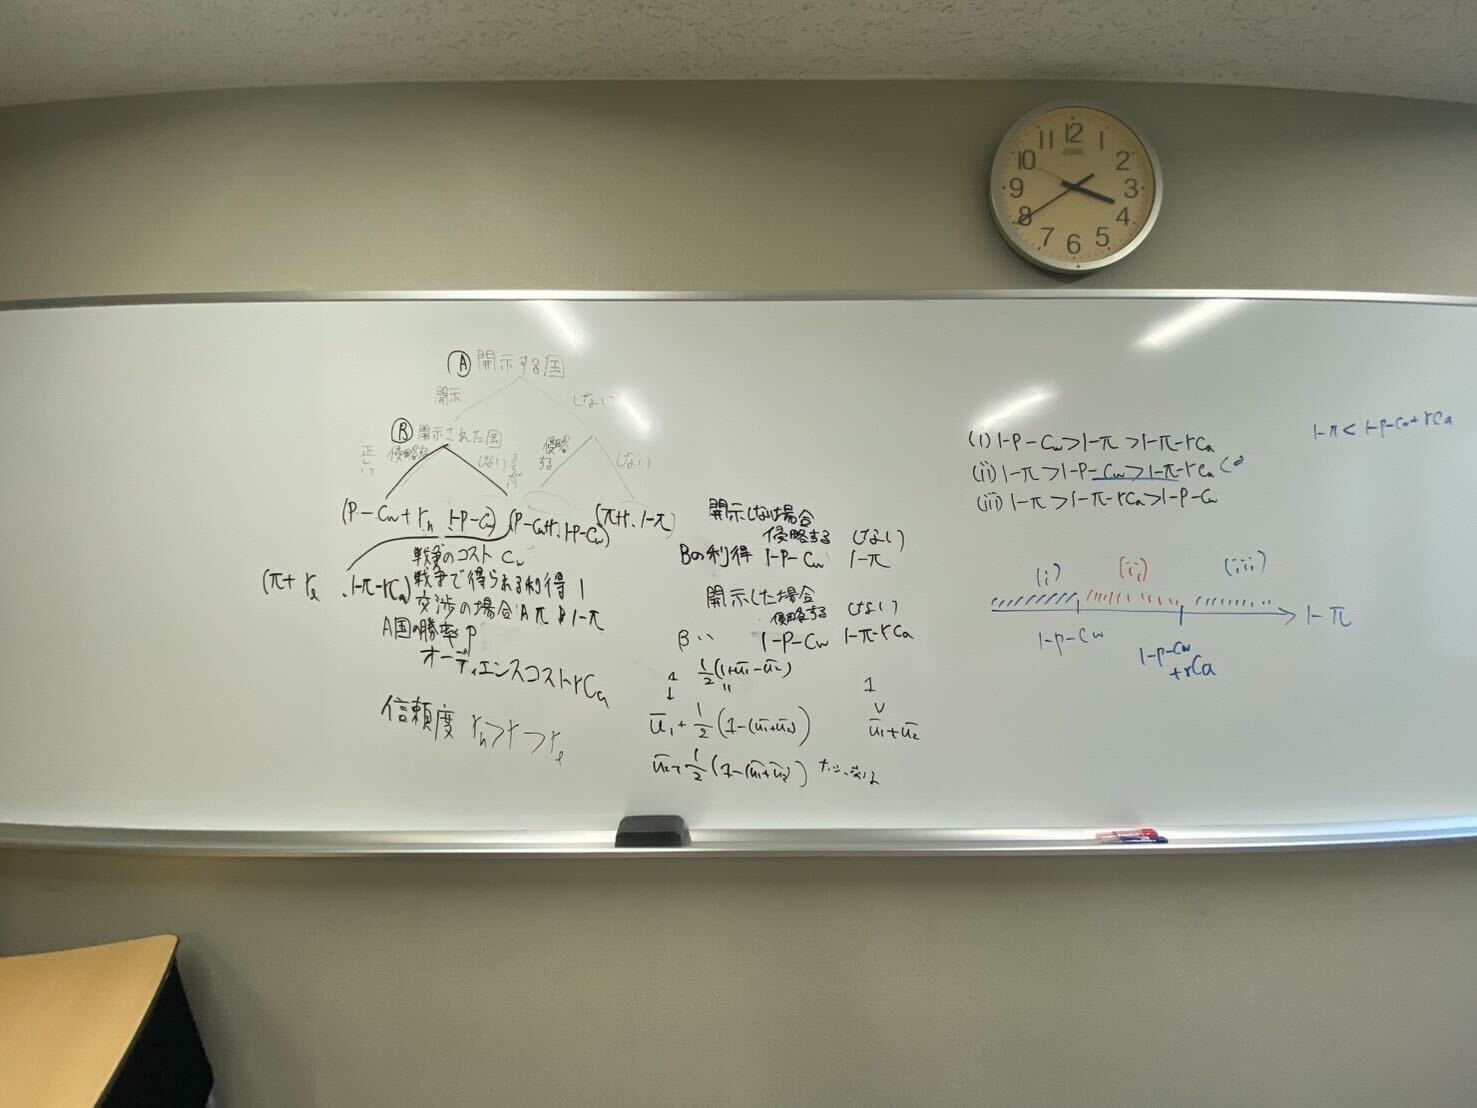 12 1 2 3 4 5 6 7 8 9 10 11
Ⓐ 開示する国
開示 しない
Ⓑ 開示された国
正しい 侵略する しない 侵略する しない
(P-Cw+rh, 1-P-Cw) (P-Cw+r, 1-P-Cw) (π+r, 1-π)
(π+rℓ, 1-π-rCa)
戦争のコスト Cw
戦争で得られる利得 1
交渉の場合 A π B 1-π
A国の勝率 p
オーディエンスコスト rCa
信頼度 rh>r>rℓ
開示しない場合
侵略する しない
Bの利得 1-P-Cw 1-π
開示した場合
侵略する しない
B 〃 1-P-Cw 1-π-rCa
1/2(1+ū1-ū2)
1 ↓ 〃
ū1+1/2(1-(ū1+ū2))
1 ∨ ū1+ū2
ū2+1/2(1-(ū1+ū2))
(i) 1-P-Cw>1-π>1-π-rCa
(ii) 1-π>1-P-Cw>1-π-rCa
(iii) 1-π>1-π-rCa>1-P-Cw
1-π<1-P-Cw+rCa
(i) (ii) (iii)
1-π
1-P-Cw
1-P-Cw
+rCa